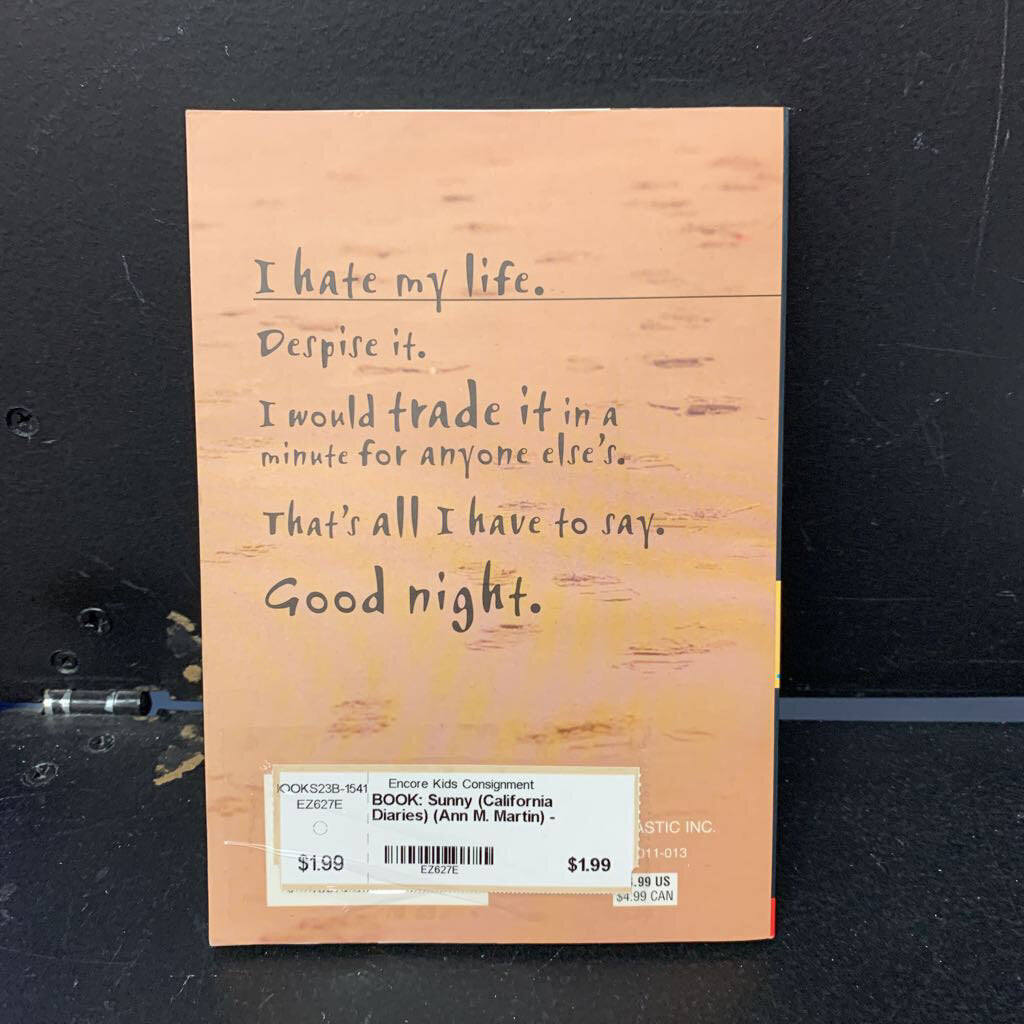 I hate my life.
Despise it.
I would trade it in a
minute for anyone else's.
That's all I have to say.
Good night.
OOKS23B-1541
EZ627E
$1.99
Encore Kids Consignment
BOOK: Sunny (California
Diaries) (Ann M. Martin) -
EZ627E
$1.99
ASTIC INC.
011-013
.99 US
$4.99 CAN